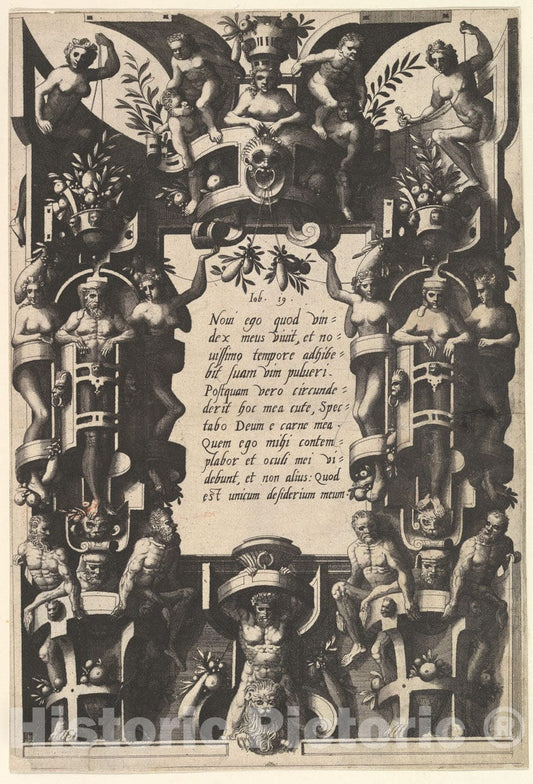 Iob. 19.
Noui ego quod vin=
dex meus viuit, et no=
uissimo tempore adhibe=
bit suam vim pulueri.
Postquam vero circunde=
derit hoc mea cute, Spec=
tabo Deum e carne mea.
Quem ego mihi contem=
plabor et oculi mei vi=
debunt, et non alius: Quod
est unicum desiderium meum.
Historic Pictoric ®